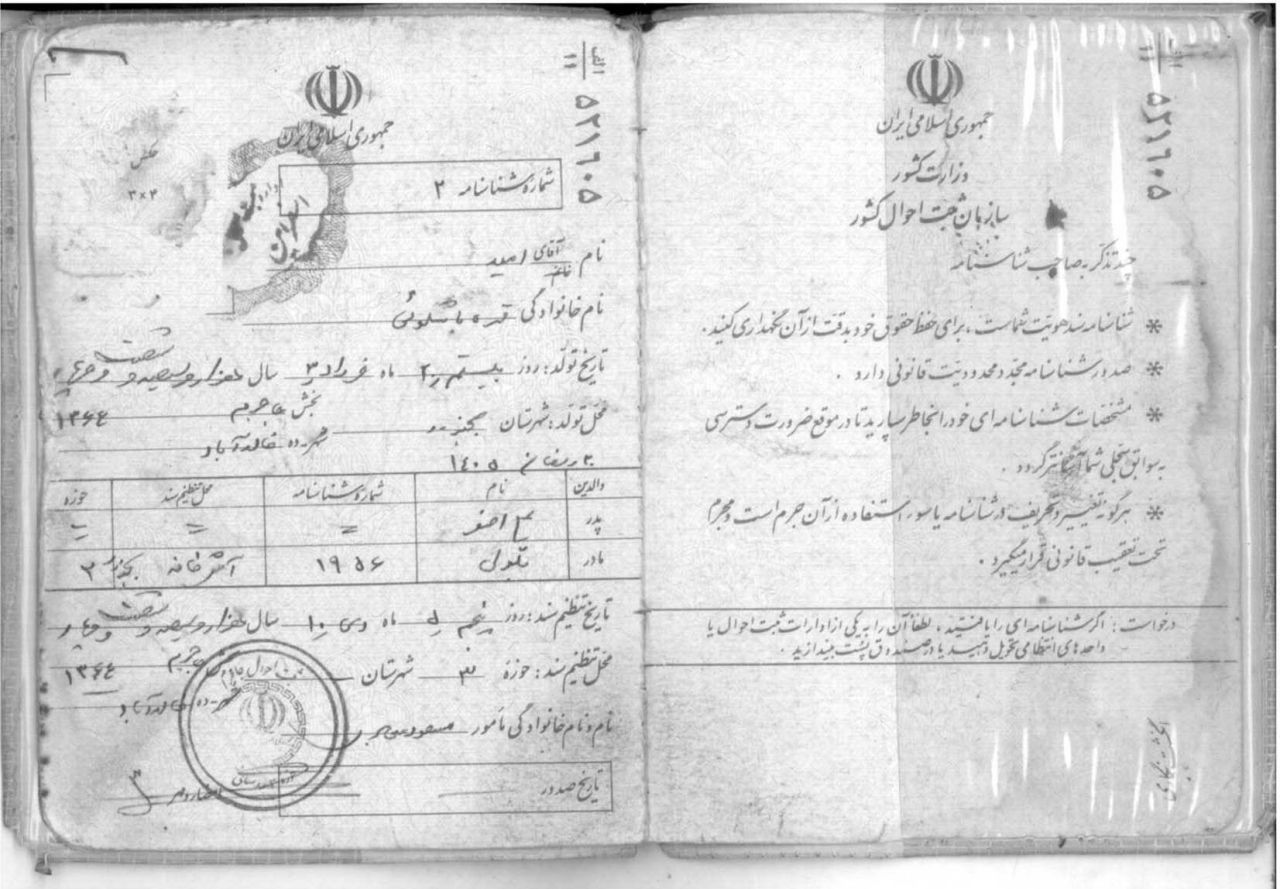 الف
۱۱
۵۲۱۶۰۵
جمهوری اسلامی ایران
وزارت کشور
سازمان ثبت احوال کشور
چند تذکر به صاحب شناسنامه
* شناسنامه سند هویت شماست ، برای حفظ حقوق خود بدقت از آن نگهداری کنید .
* صدور شناسنامه مجدد محدودیت قانونی دارد .
* مشخصات شناسنامه ای خود را بخاطر بسپارید تا در موقع ضرورت دسترسی
به سوابق سجلی شما آسانتر گردد .
* هرگونه تغییر و تحریف در شناسنامه یا سوء استفاده از آن جرم است و مجرم
تحت تعقیب قانونی قرار میگیرد .
درخواست : اگر شناسنامه ای را یافتید ، لطفاً آن را به یکی از ادارات ثبت احوال یا
واحدهای انتظامی تحویل دهید یا در صندوق پست بیندازید .
الف
۱۱
۵۲۱۶۰۵
جمهوری اسلامی ایران
عکس
۳×۴
شماره شناسنامه ۲
نام آقای خانم امید
نام خانوادگی
تاریخ تولد : روز بیستم ۲۰ ماه خرداد ۳ سال هزار و سیصد و شصت و چهار
۱۳۶۴
محل تولد : شهرستان بجنورد بخش جاجرم
ده خالدآباد
۱۴۰۵
والدین نام شماره شناسنامه محل تنظیم سند حوزه
پدر اصغر = = =
مادر بتول ۱۹۵۶ آشخانه بجنورد ۲
تاریخ تنظیم سند : روز پنجم ۵ ماه دی ۱۰ سال هزار و سیصد و شصت و چهار
۱۳۶۴
محل تنظیم سند : حوزه ۳ شهرستان جاجرم
ده خالدآباد
نام و نام خانوادگی مأمور مسعود
تاریخ صدور